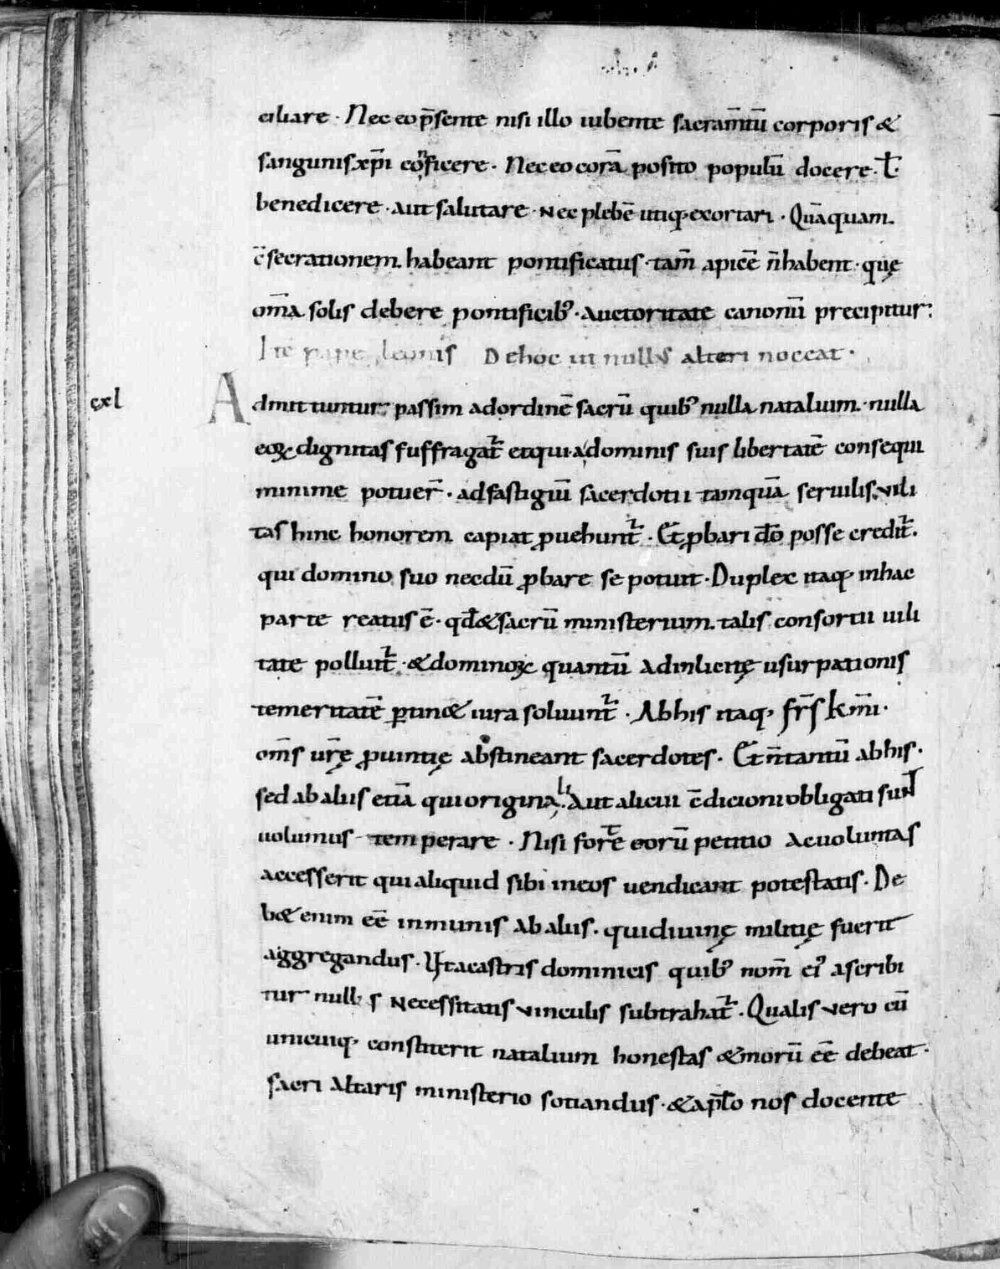 ciliare · Nec eo p̄sente nisi illo iubente sacram̄tū corporis &
sanguinis xp̄i cōficere · Nec eo corā posito populū docere · ƚ ·
benedicere · aut salutare · Nec plebē utiq; exortari · Quāquam
c̄secrationem habeant pontificatus · tam̄ apicē n̄ habent · quę
om̄a solis debere pontificib; · auctoritate canonū precipitur:
Itē pape leonis De hoc ut nullus alteri noceat ·
cxl
Admittuntur passim ad ordinē sacrū quib; nulla natalium · nulla
eoꝝ dignitas suffragat̄ et qui a dominis suis libertatē consequi
minime potuer̄ · ad fastigiū sacerdotii tamquā seruilis vili
tas hinc honorem capiat ꝓuehunt̄ · Et ꝓbari dō posse credit̄ ·
qui domino suo necdū ꝓbare se potuit · Duplex itaq; in hac
parte reatus ē · qđ & sacrū ministerium talis consortii uili
tate polluit̄ · & dominoꝝ quantū ad inlicitę usurpationis
temeritatē ꝑtin& iura soluunt̄ · Ab his itaq; fr̄s km̄i ·
om̄s ur̄ę ꝓuintię abstineant sacerdotes · Et n̄ tantū ab his ·
sed ab aliis etiā qui originali aut alicui c̄dicioni obligati sunt
uolumus temperare · Nisi forte eorū petitio ac uoluntas
accesserit qui aliquid sibi in eos uendicant potestatis · De
b& enim eē inmunis ab aliis · qui diuinę militię fuerit
aggregandus · Ut a castris dominicis quib; nom̄ ei; ascribi
tur nullis necessitatis vinculis subtrahat̄ · Qualis vero cū
unicuiq; constiterit natalium honestas & morū eē debeat ·
sacri altaris ministerio sotiandus · & ap̄lo nos docente